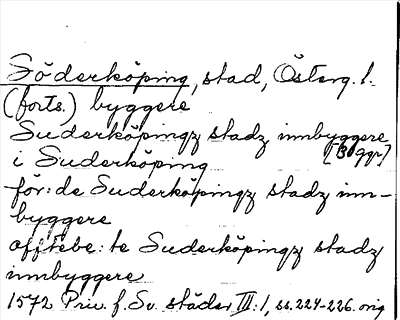 Söderköping, stad, Österg. l.
(forts.) byggere
Suderköpingz stadz innbyggere
i Suderköping [3 ggr]
för: de Suderköpingz stadz inn-
byggere
offtebe: te Suderköpingz stadz
innbyggere
1572 Priv. f. Sv. städer III: 1, ss. 224-226. orig